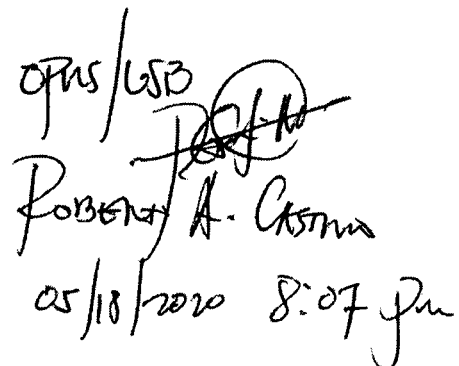 OPNS/LSB
ROBERTO A. CASTRO
05/18/2020 8:07 pm